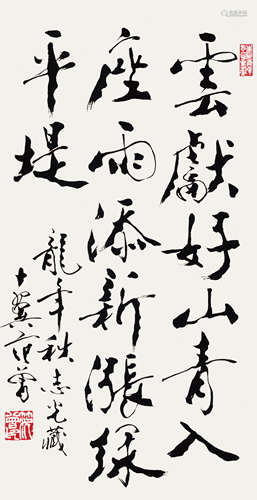 雲獻好山青入
座雨添新漲綠
平堤
龍年秋志光藏
十翼范曾